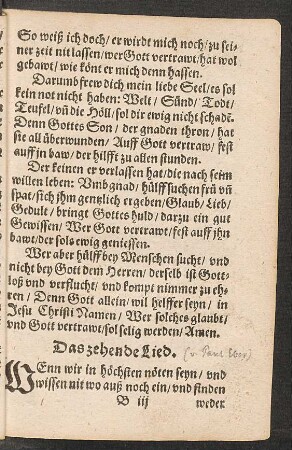 So weiß ich doch/ er wirdt mich noch/ zu sei-
ner zeit nit lassen/ wer Gott vertrawt/ hat wol
gebawt/ wie könt er mich denn hassen.
Darumb frew dich mein liebe Seel/ es sol
kein not nicht haben: Welt/ Sünd/ Todt/
Teufel/ vñ die Höll/ sol dir ewig nicht schadē.
Denn Gottes Son/ der gnaden thron/ hat
sie all überwunden/ Auff Gott vertraw/ fest
auff jn baw/ der hilfft zu allen stunden.
Der keinen er verlassen hat/ die nach seim̄
willen leben: Vmb gnad/ hülff suchen frü vñ
spat/ sich jhm gentzlich ergeben/ Glaub/ Lieb/
Gedult/ bringt Gottes huld/ darzu ein gut
Gewissen/ Wer Gott vertrawt/ fest auff jhn
bawt/ der sols ewig geniessen.
Wer aber hülff bey Menschen sucht/ vnd
nicht bey Gott dem Herren/ derselb ist Gott-
loß vnd verflucht/ vnd kompt nimmer zu eh-
ren/ Denn Gott allein/ wil helffer seyn/ in
Jesu Christi Namen/ Wer solches glaubt/
vnd Gott vertrawt/ sol selig werden/ Amen.
Das zehende Lied. (v. Paul Eber)
WEnn wir in höchsten nöten seyn/ vnd
wissen nit wo auß noch ein/ vnd finden
B iij weder